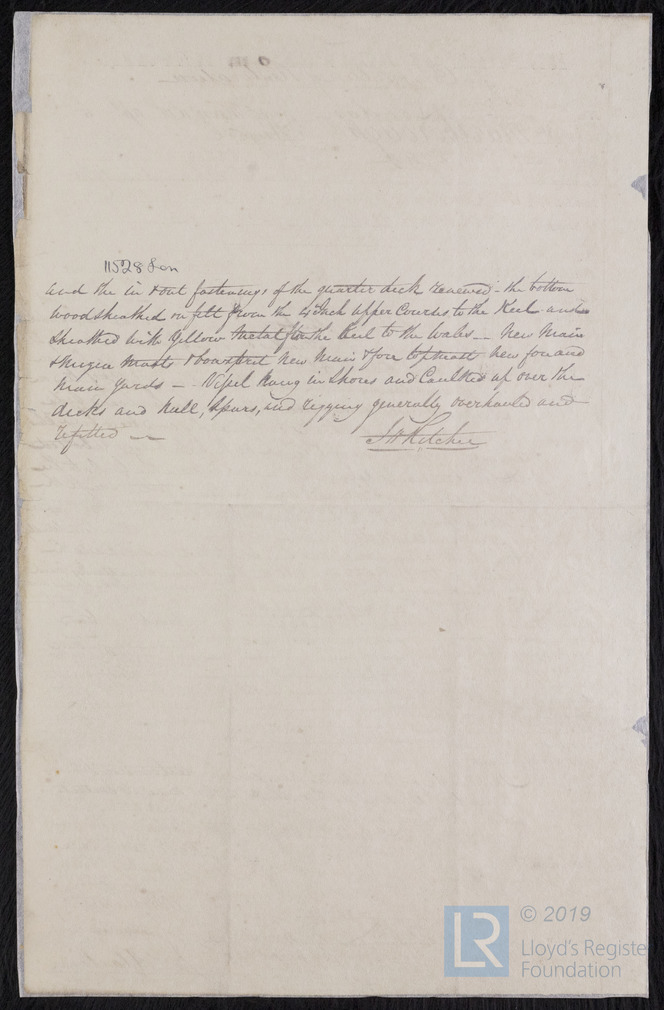 11528 Lon
and the in & out fastenings of the quarter deck renewed - the bottom
wood sheathed on felt from the 4 Inch upper Courses to the Keel and
sheathed with Yellow Metal from the Keel to the Wales - New Main
& Mizen Masts & bowsprit New Main & fore topmasts new fore and
Main Yards - Vessel hung in Shores and Caulked up over the
decks and hull, Spars, and rigging generally overhauled and
refitted -
J H Kitcher
LR © 2019
Lloyd's Registe
Foundation